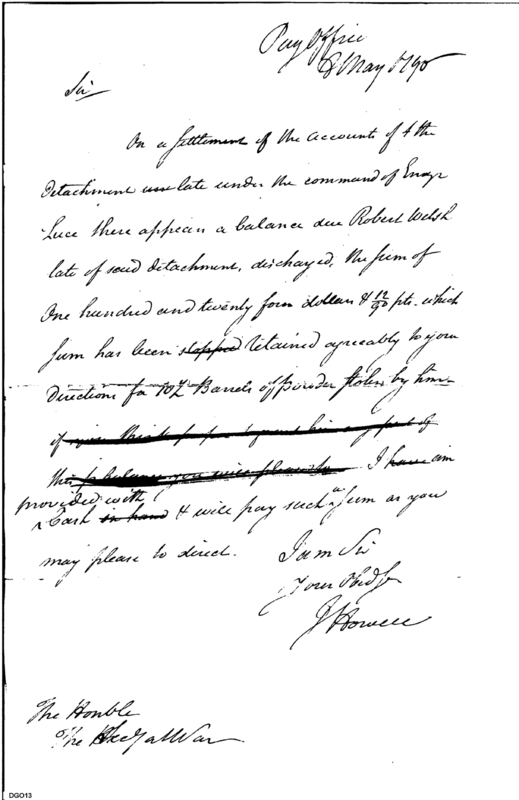 Pay Office
8 May 1795
Sir
On a Settlement of the accounts of the
Detachment late under the command of Ensgn
Luce there appears a balance due Robert Welsh
late of said detachment, discharged, the sum of
One hundred and twenty four dollars & 12/90 pts. which
Sum has been stopped retained agreeably to your
Directions for Barrels of Powder stolen by him
I have am
provided with
Cash in hand & will pay such a Sum as you
may please to direct.
I am Sir
Your Obed Sr
J Howell
The Honble
The Secy at War
DGO13